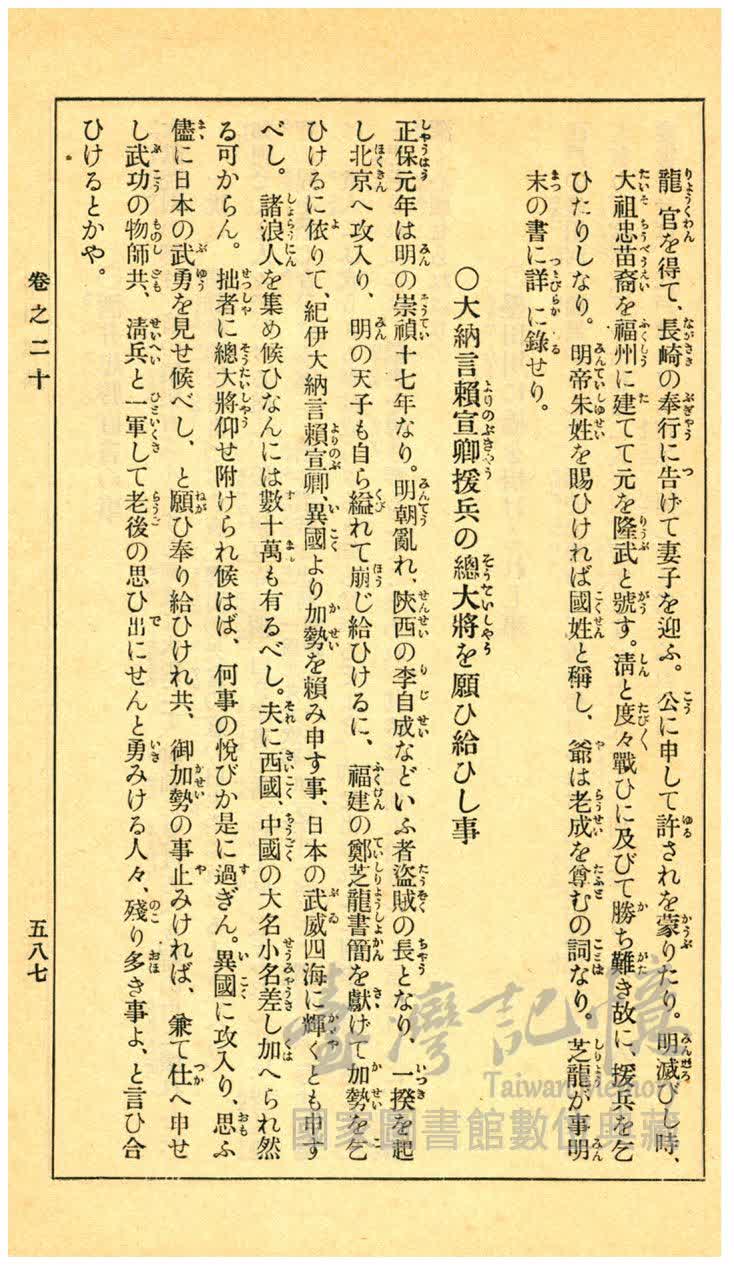 龍官を得て、長崎の奉行に告げて妻子を迎ふ。公に申して許されを蒙りたり。明滅びし時、
大祖忠苗裔を福州に建てて元を隆武と號す。淸と度々戰ひに及びて勝ち難き故に、援兵を乞
ひたりしなり。明帝朱姓を賜ひければ國姓と稱し、爺は老成を尊むの詞なり。芝龍が事明
末の書に詳に錄せり。
〇大納言賴宣卿援兵の總大將を願ひ給ひし事
正保元年は明の崇禎十七年なり。明朝亂れ、陝西の李自成などいふ者盜賊の長となり、一揆を起
し北京へ攻入り、明の天子も自ら縊れて崩じ給ひけるに、福建の鄭芝龍書簡を獻げて加勢を乞
ひけるに依りて、紀伊大納言賴宣卿、異國より加勢を賴み申す事、日本の武威四海に輝くとも申す
べし。諸浪人を集め候ひなんには數十萬も有るべし。夫に西國、中國の大名小名差し加へられ然
る可からん。拙者に總大將仰せ附けられ候はば、何事の悅びか是に過ぎん。異國に攻入り、思ふ
儘に日本の武勇を見せ候べし、と願ひ奉り給ひけれ共、御加勢の事止みければ、兼て仕へ申せ
し武功の物師共、淸兵と一軍して老後の思ひ出にせんと勇みける人々、殘り多き事よ、と言ひ合
ひけるとかや。
卷之二十
五八七
臺灣記憶
Taiwan Memory
國家圖書館數位典藏